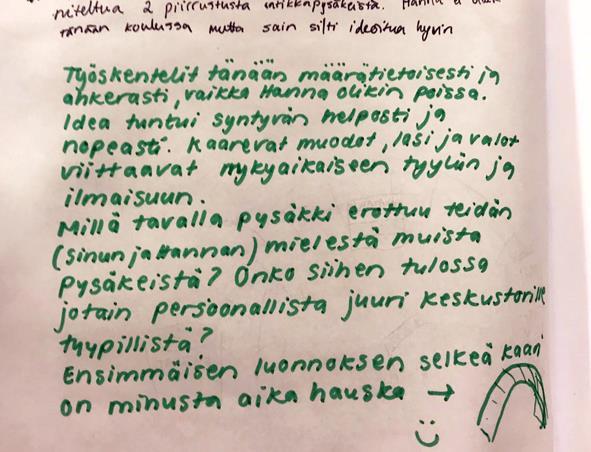 niteltua 2 piirrustusta
tänään koulussa mutta sain silti ideoitua hyvin
Työskentelit tänään määrätietoisesti ja
ahkerasti, vaikka Hanna olikin poissa.
Idea tuntui syntyvän helposti ja
nopeasti. Kaarevat muodot, lasi ja valot
viittaavat nykyaikaiseen tyyliin ja
ilmaisuun.
Millä tavalla pysäkki erottuu teidän
(sinun ja Hannan) mielestä muista
pysäkeistä? Onko siihen tulossa
jotain persoonallista juuri keskustorille
tyypillistä?
Ensimmäisen luonnoksen selkeä kaari
on minusta aika hauska →